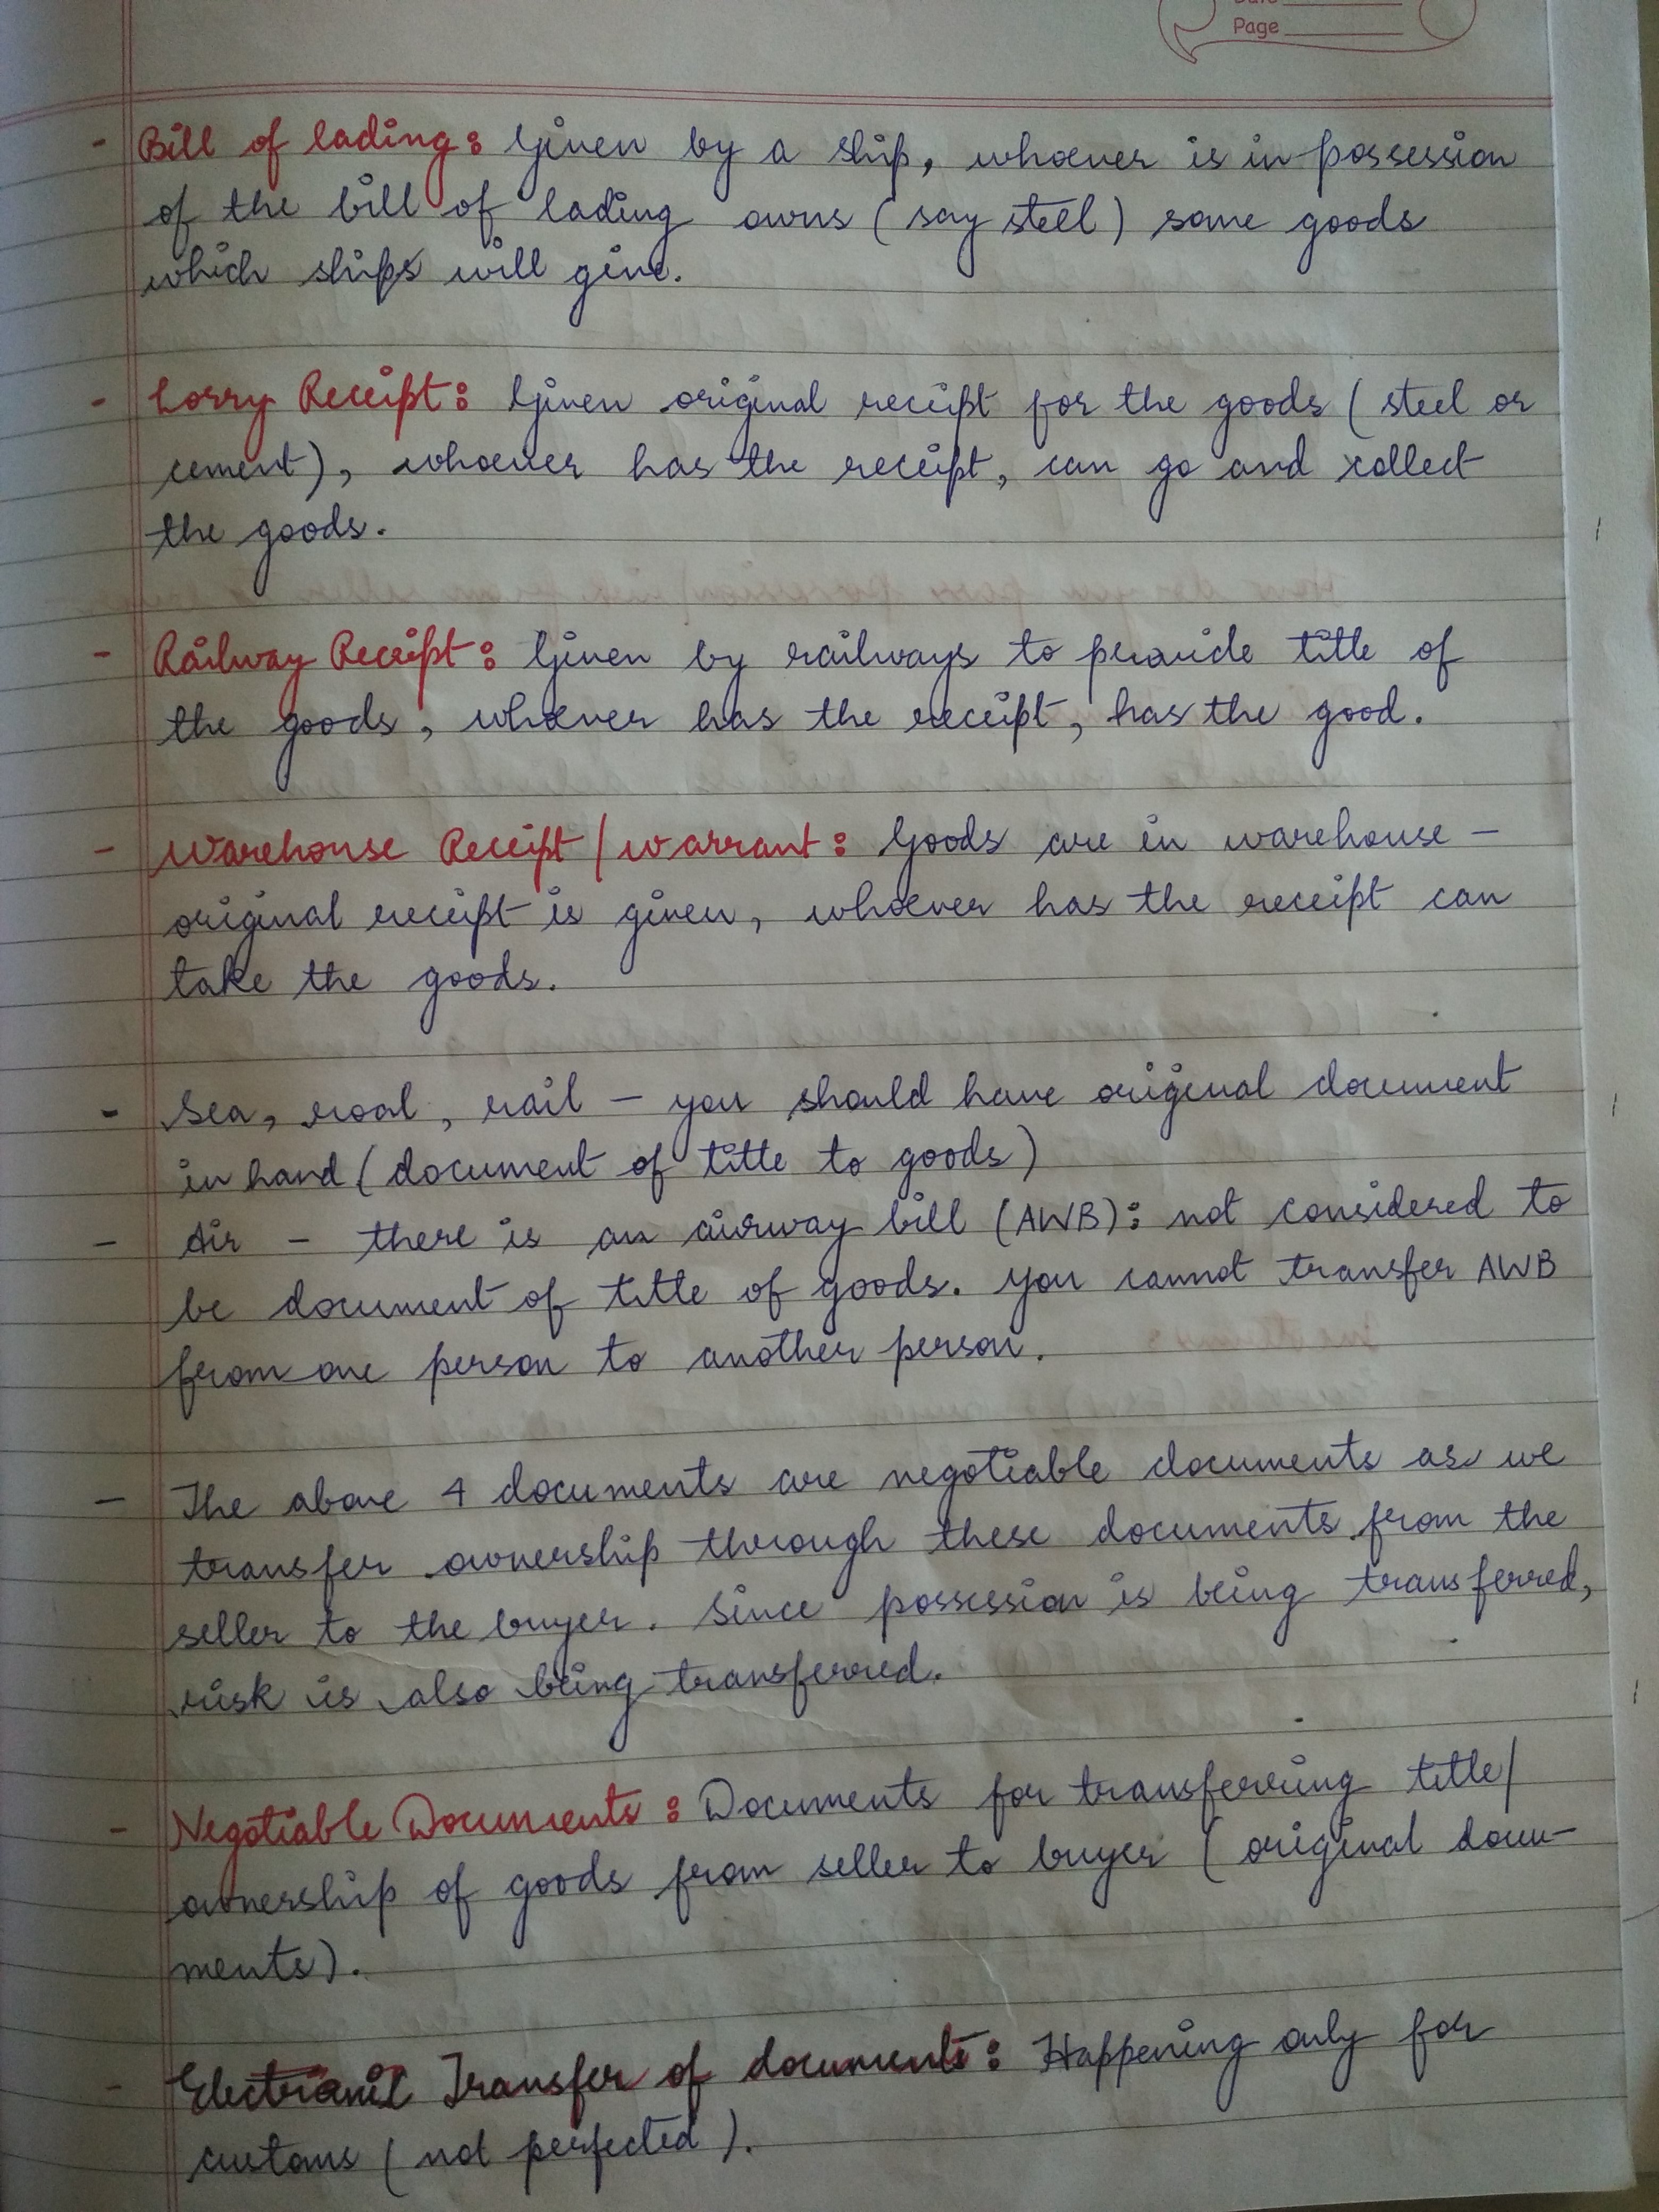 Page
- Bill of lading: Given by a ship, whoever is in possession
of the bill of lading owns (say steel) some goods
which ships will give.
- Lorry Receipt: Given original receipt for the goods (steel or
cement), whoever has the receipt, can go and collect
the goods.
- Railway Receipt: Given by railways to provide title of
the goods, whoever has the receipt, has the good.
- Warehouse Receipt/warrant: Goods are in warehouse -
original receipt is given, whoever has the receipt can
take the goods.
- Sea, road, rail - you should have original document
in hand (document of title to goods)
- Air - there is an airway bill (AWB): not considered to
be document of title of goods. You cannot transfer AWB
from one person to another person.
- The above 4 documents are negotiable documents as we
transfer ownership through these documents from the
seller to the buyer. Since possession is being transferred,
risk is also being transferred.
- Negotiable Documents: Documents for transferring title/
ownership of goods from seller to buyer (original docu-
ments).
- Electronic Transfer of documents: Happening only for
customs (not perfected).